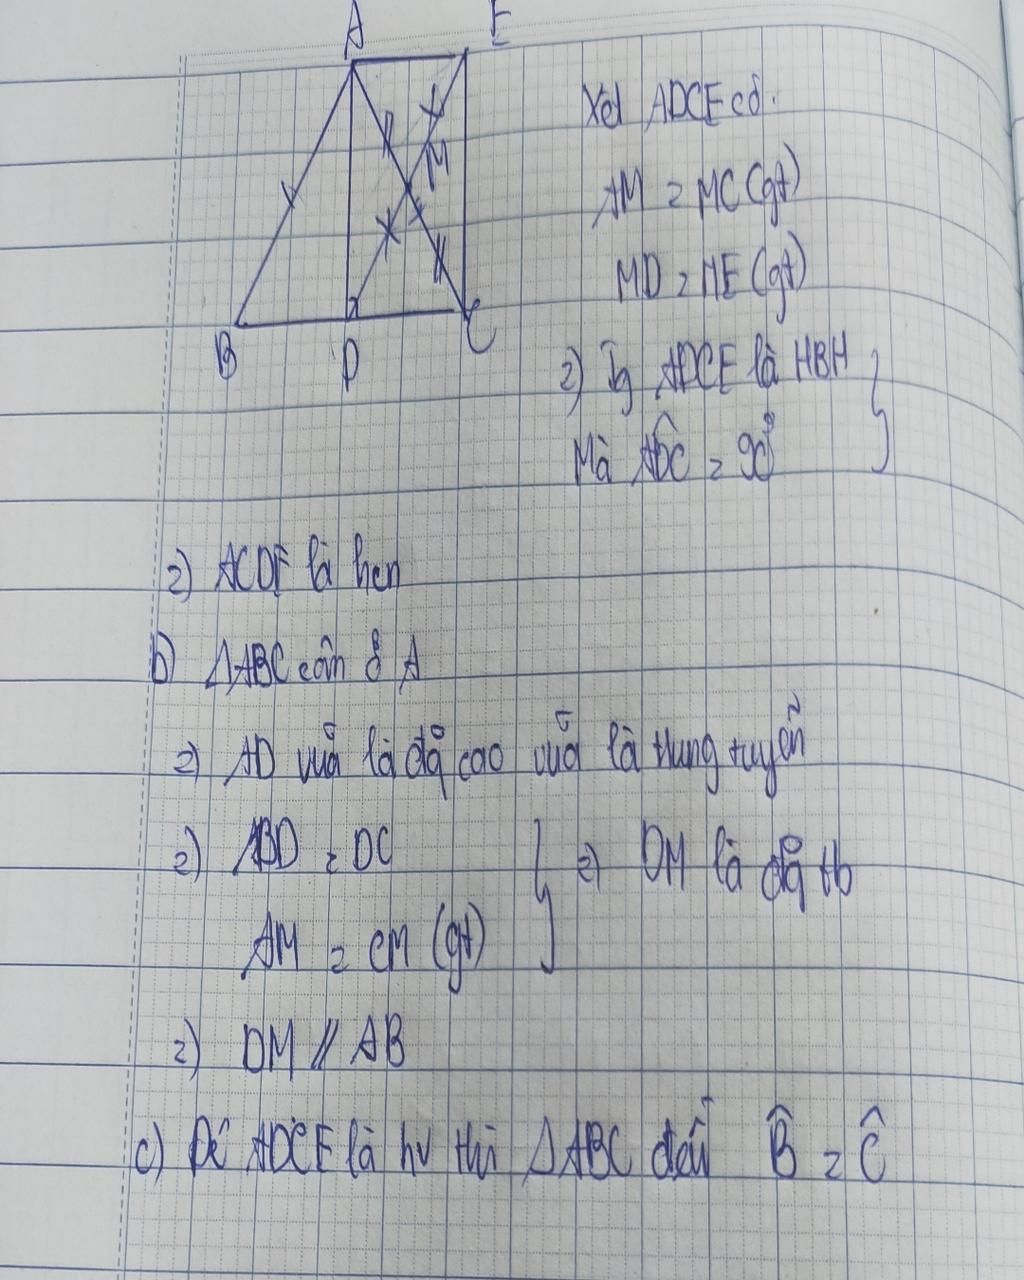 A E
M
B D C
Xét ADCE có.
AM = MC (gt)
MD = ME (gt)
=) Tg ADCE là HBH
Mà ADC = 90°
=) ACDE là hcn
b) ΔABC cân ở A
=) AD vừa là đg cao vừa là trung tuyến
=) BD = DC
=) DM là đg tb
AM = CM (gt)
=) DM // AB
c) Để ADCE là hv thì ΔABC đều B̂ = Ĉ